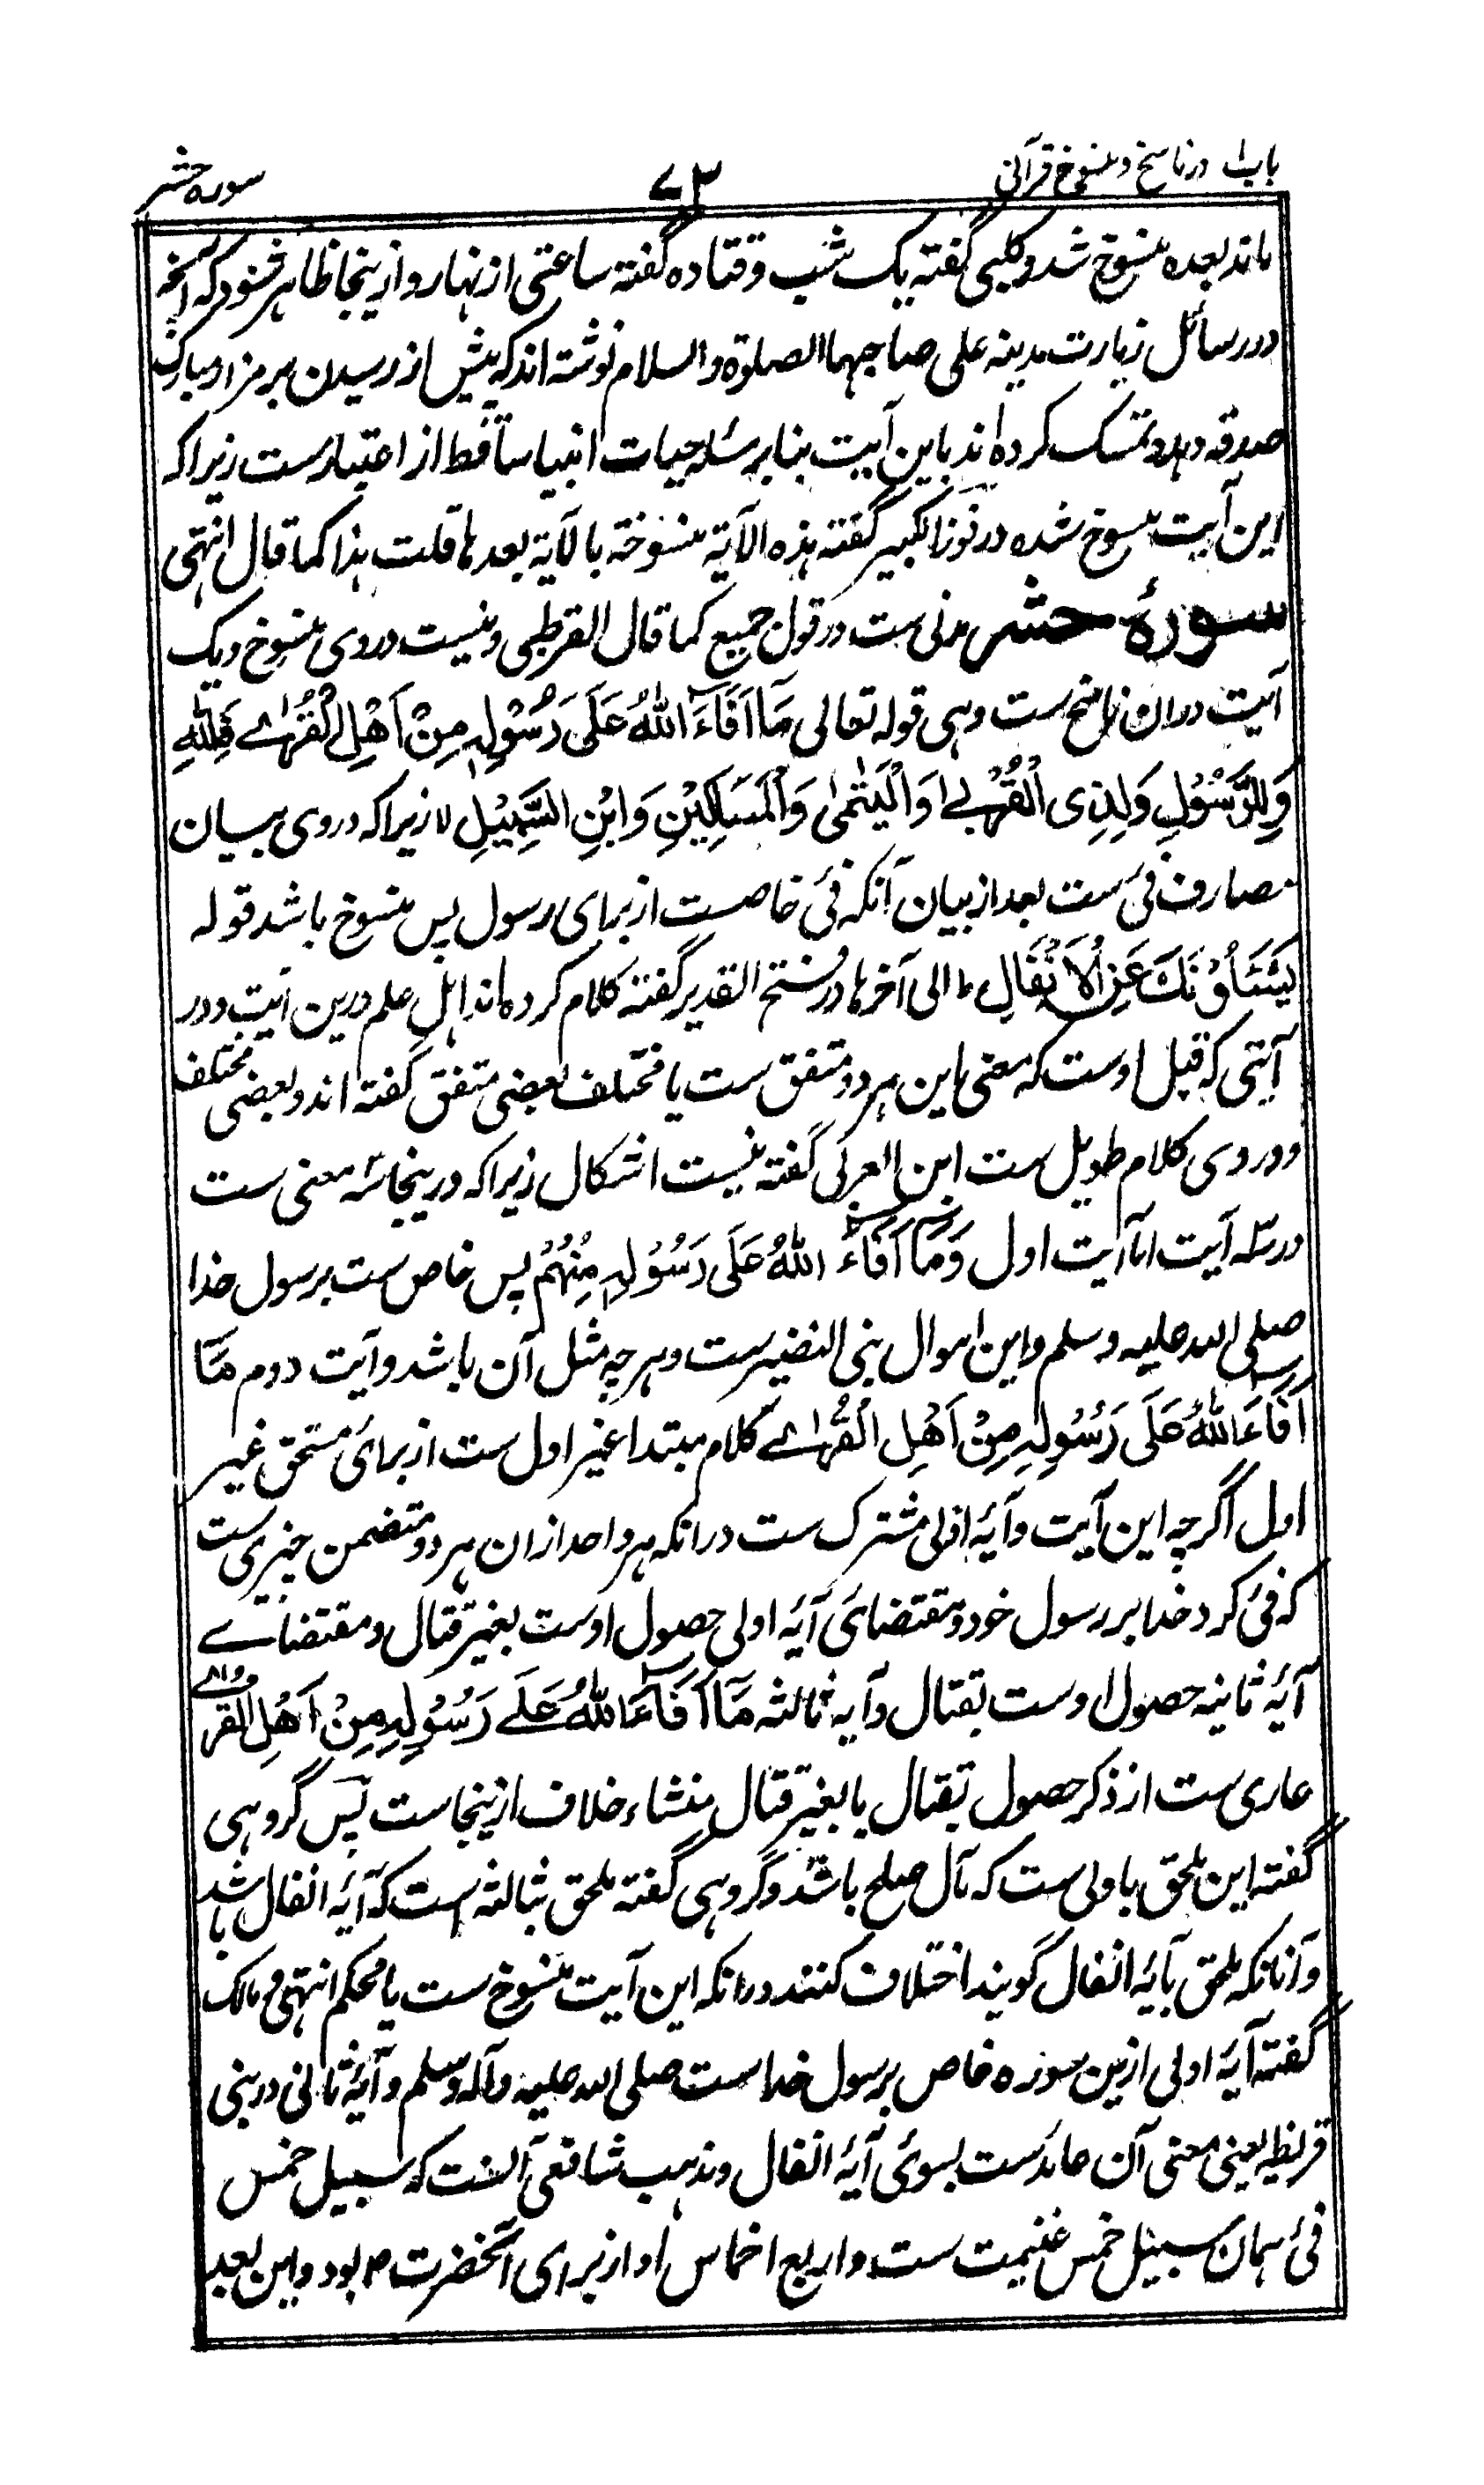 باب۱ در ناسخ و منسوخ قرآنی ۷۳ سوره حشر
ماند بعده منسوخ شد و کلبی گفته یک شب و قتاده گفته ساعتی از نهار و ازینجا ظاهر شود که آنچه
در رسائل زیارت مدینه علی صاحبها الصلوة والسلام نوشته اند که پیش از رسیدن بر مزار مبارک
صدقه دهد و تمسک کرده اند باین آیت بنا بر مسئله حیات انبیا ساقط از اعتبارست زیرا که
این آیت منسوخ شده در فوز الکبیر گفته هذه الآیة منسوخة بالآیة بعدها قلت هذا کما قال انتهی
سورۂ حشر مدنی ست در قول جمیع کما قال القرطبی و نیست در وی منسوخ و یک
آیت دران ناسخ ست و هی قوله تعالی مَآ اَفَآءَ اللهُ عَلَی رَسُوْلِهٖ مِنْ اَهْلِ الْقُرٰے فَلِلّٰهِ
وَلِلرَّسُوْلِ وَلِذِی الْقُرْبٰے وَالْیَتٰمٰی وَالْمَسَاکِیْنِ وَابْنِ السَّبِیْلِ لا زیرا که در وی بیان
مصارف فئ ست بعد از بیان آنکه فئ خاصست از برای رسول پس منسوخ باشد قوله
یَسْئَلُوْنَکَ عَنِ الْاَنْفَالِ الی آخرها در فتح القدیر گفته کلام کرده اند اهل علم درین آیت و در
آیتی که قبل اوست که معنی این هر دو متفق ست یا مختلف بعضی متفق گفته اند و بعضی مختلف
و در وی کلام طویل ست ابن العربی گفته نیست اشکال زیرا که درینجا سه معنی ست
در سه آیت اما آیت اول وَمَآ اَفَآءَ اللهُ عَلَی رَسُوْلِهٖ مِنْهُمْ پس خاص ست برسول خدا
صلی الله علیه وسلم و این اموال بنی النضیرست و هرچه مثل آن باشد و آیت دوم مَآ
اَفَآءَ اللهُ عَلَی رَسُوْلِهٖ مِنْ اَهْلِ الْقُرٰے کلام مبتدا غیر اول ست از برای مستحق غیر
اول اگرچه این آیت و آیۂ اولی مشترک ست در انکه هر واحد از ان هر دو متضمن چیزی ست
که فئ کرد خدا بر رسول خود و مقتضای آیۂ اولی حصول اوست بغیر قتال و مقتضاے
آیۂ ثانیه حصول اوست بقتال و آیه ثالثه مَآ اَفَآءَ اللهُ عَلَے رَسُوْلِهٖ مِنْ اَهْلِ الْقُرٰے
عاری ست از ذکر حصول بقتال یا بغیر قتال منشاء خلاف ازینجاست پس گروهی
گفته این ملحق باولی ست که مآل صلح باشد و گروهی گفته ملحق بثالثه است که آیۂ انفال باشد
و آنانکه ملحق بآیۂ انفال گویند اختلاف کنند در انکه این آیت منسوخ ست یا محکم انتهی و مالک
گفته آیۂ اولی ازین سوره خاص برسول خداست صلی الله علیه وآله وسلم و آیۂ ثانی در بنی
قریظه یعنی معنی آن عائدست بسوی آیۂ انفال و مذهب شافعی آنست که سبیل خمس
فئ همان سبیل خمس غنیمت ست و اربع اخماس او از برای آنحضرت ص بود و این بعد